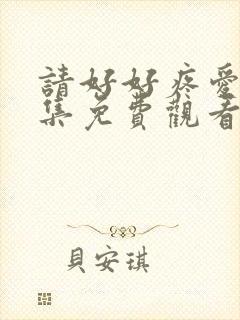 請好好疼愛
集免費觀看
貝安琪